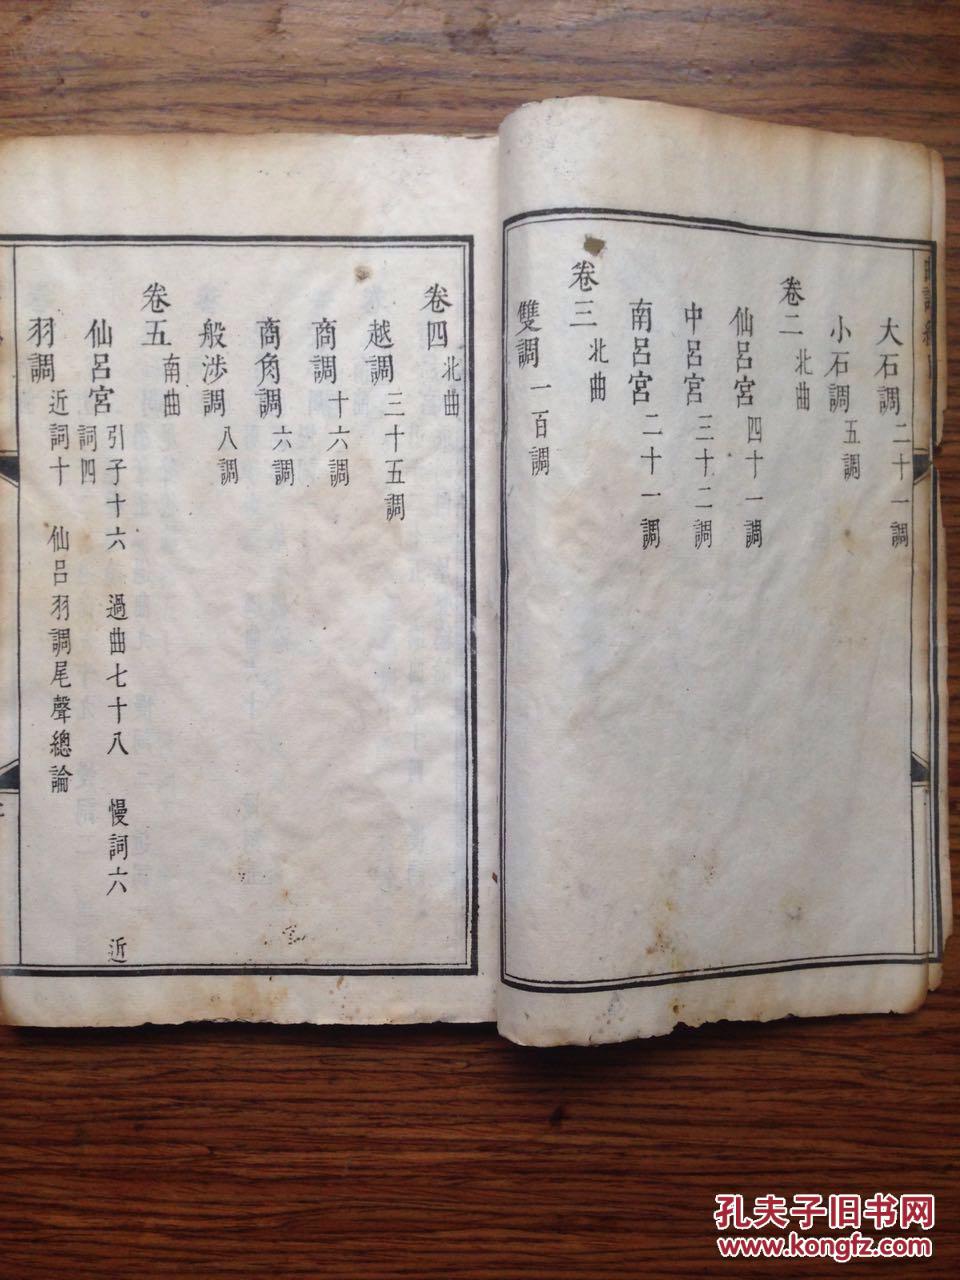 大石調 二十一調
小石調 五調
卷二 北曲
仙呂宮 四十一調
中呂宮 三十二調
南呂宮 二十一調
卷三 北曲
雙調 一百調
卷四 北曲
越調 三十五調
商調 十六調
商角調 六調
般涉調 八調
卷五 南曲
仙呂宮 引子十六 過曲七十八 慢詞六 近
詞四
羽調 近詞十 仙呂羽調尾聲總論
孔夫子旧书网
www.kongfz.com